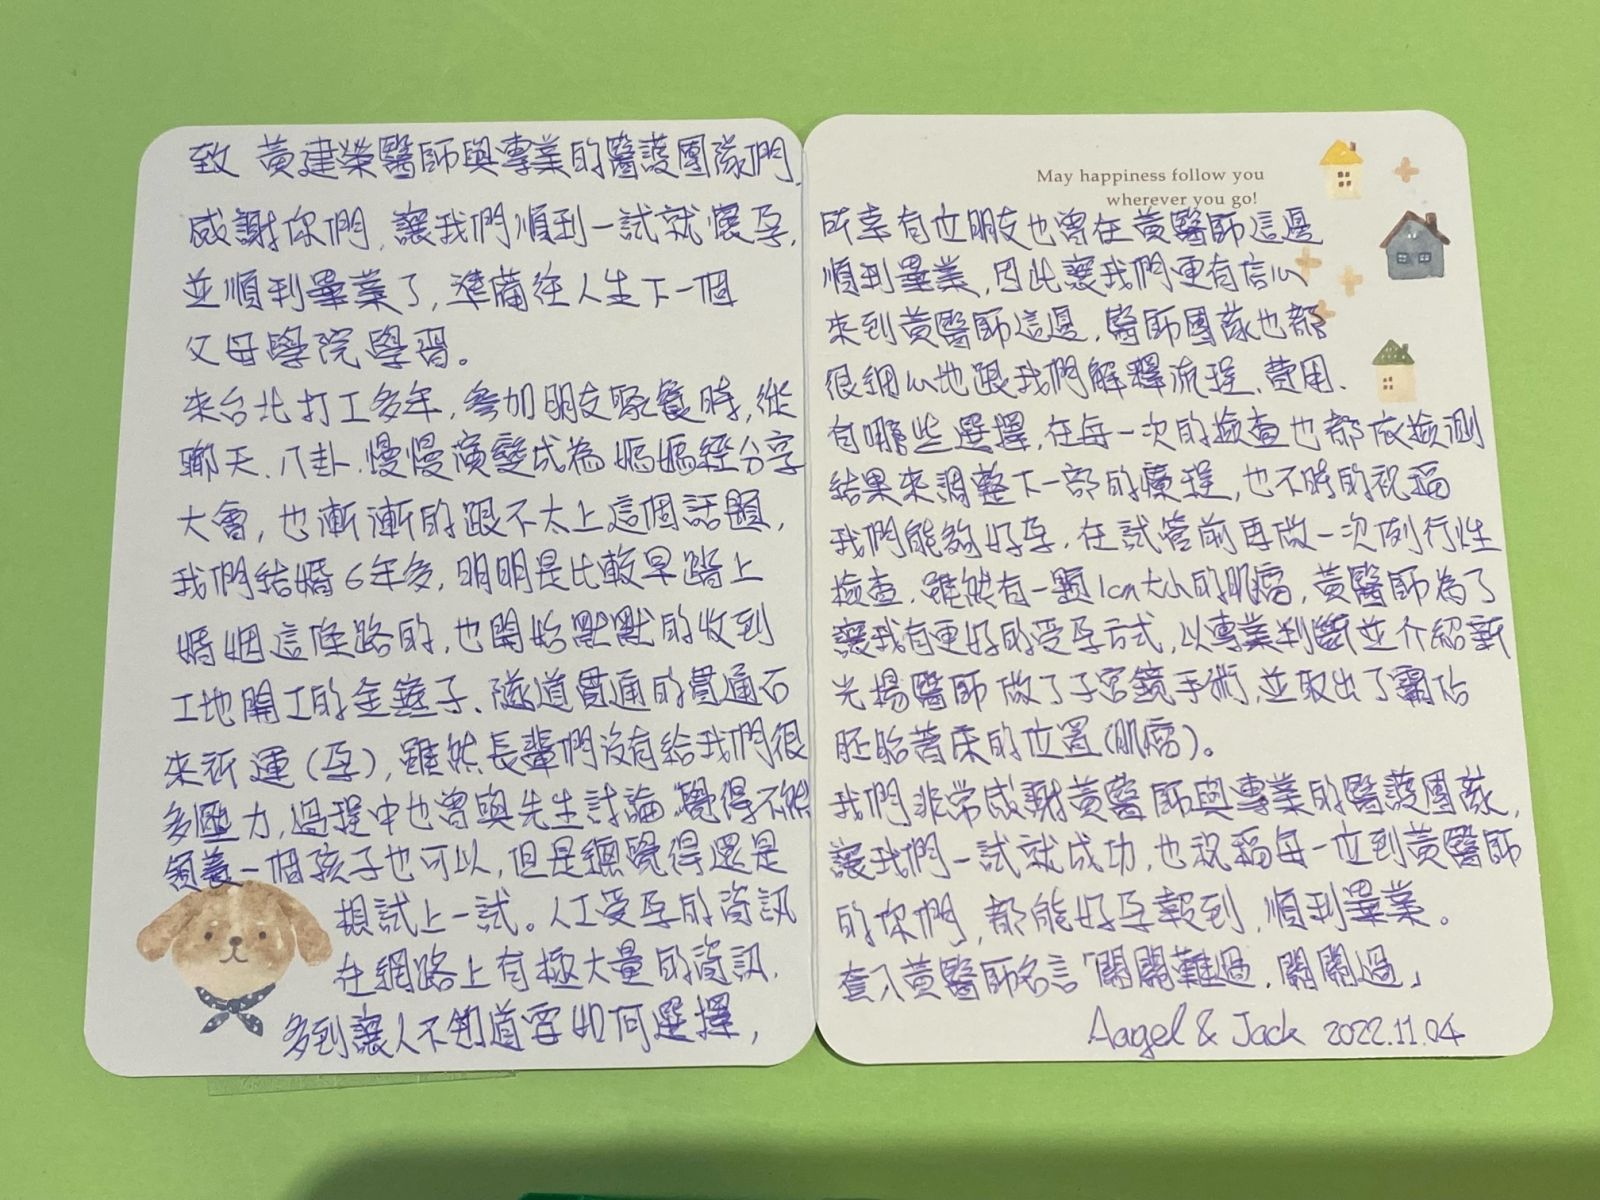 致 黃建榮醫師與專業的醫護團隊們,
感謝你們,讓我們順利一試就懷孕,
並順利畢業了,準備往人生下一個
父母學院學習。
來台北打工多年,參加朋友聚餐時,從
聊天、八卦,慢慢演變成為媽媽經分享
大會,也漸漸的跟不太上這個話題,
我們結婚6年多,明明是比較早踏上
婚姻這條路的,也開始默默的收到
工地開工的金鏟子、隧道貫通的貫通石
來祈運(孕),雖然長輩們沒有給我們很
多壓力,過程中也曾與先生討論,覺得不然
領養一個孩子也可以,但是總覺得還是
想試上一試。人工受孕的資訊
在網路上有極大量的資訊,
多到讓人不知道要如何選擇,
May happiness follow you
wherever you go!
所幸有位朋友也曾在黃醫師這邊
順利畢業,因此讓我們更有信心
來到黃醫師這邊,醫師團隊也都
很細心地跟我們解釋流程、費用、
有哪些選擇,在每一次的檢查也都依檢測
結果來調整下一部的療程,也不時的祝福
我們能夠好孕,在試管前再做一次例行性
檢查,雖然有一顆1cm大小的肌瘤,黃醫師為了
讓我有更好的受孕方式,以專業判斷並介紹新
光楊醫師做了子宮鏡手術,並取出了霸佔
胚胎著床的位置(肌瘤)。
我們非常感謝黃醫師與專業的醫護團隊,
讓我們一試就成功,也祝福每一位到黃醫師
的你們,都能好孕報到,順利畢業。
套入黃醫師名言「關關難過,關關過」
Aagel & Jack 2022.11.04